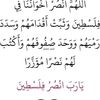 اللَّهُمَّ انْصُرْ اخْوَانَنَا فِي
فِلَسْطِينَ وَثَبِّتْ أَقْدَامَهُمْ وَسَدِّدْ
رَمْيَهُمْ وَوَحِّدْ صُفُوفَهُمْ وَاكْتُبْ
لَهُمْ نَصْرًا مُؤَزَّرًا
يَارَبِّ انْصُرْ فِلَسْطِينَ